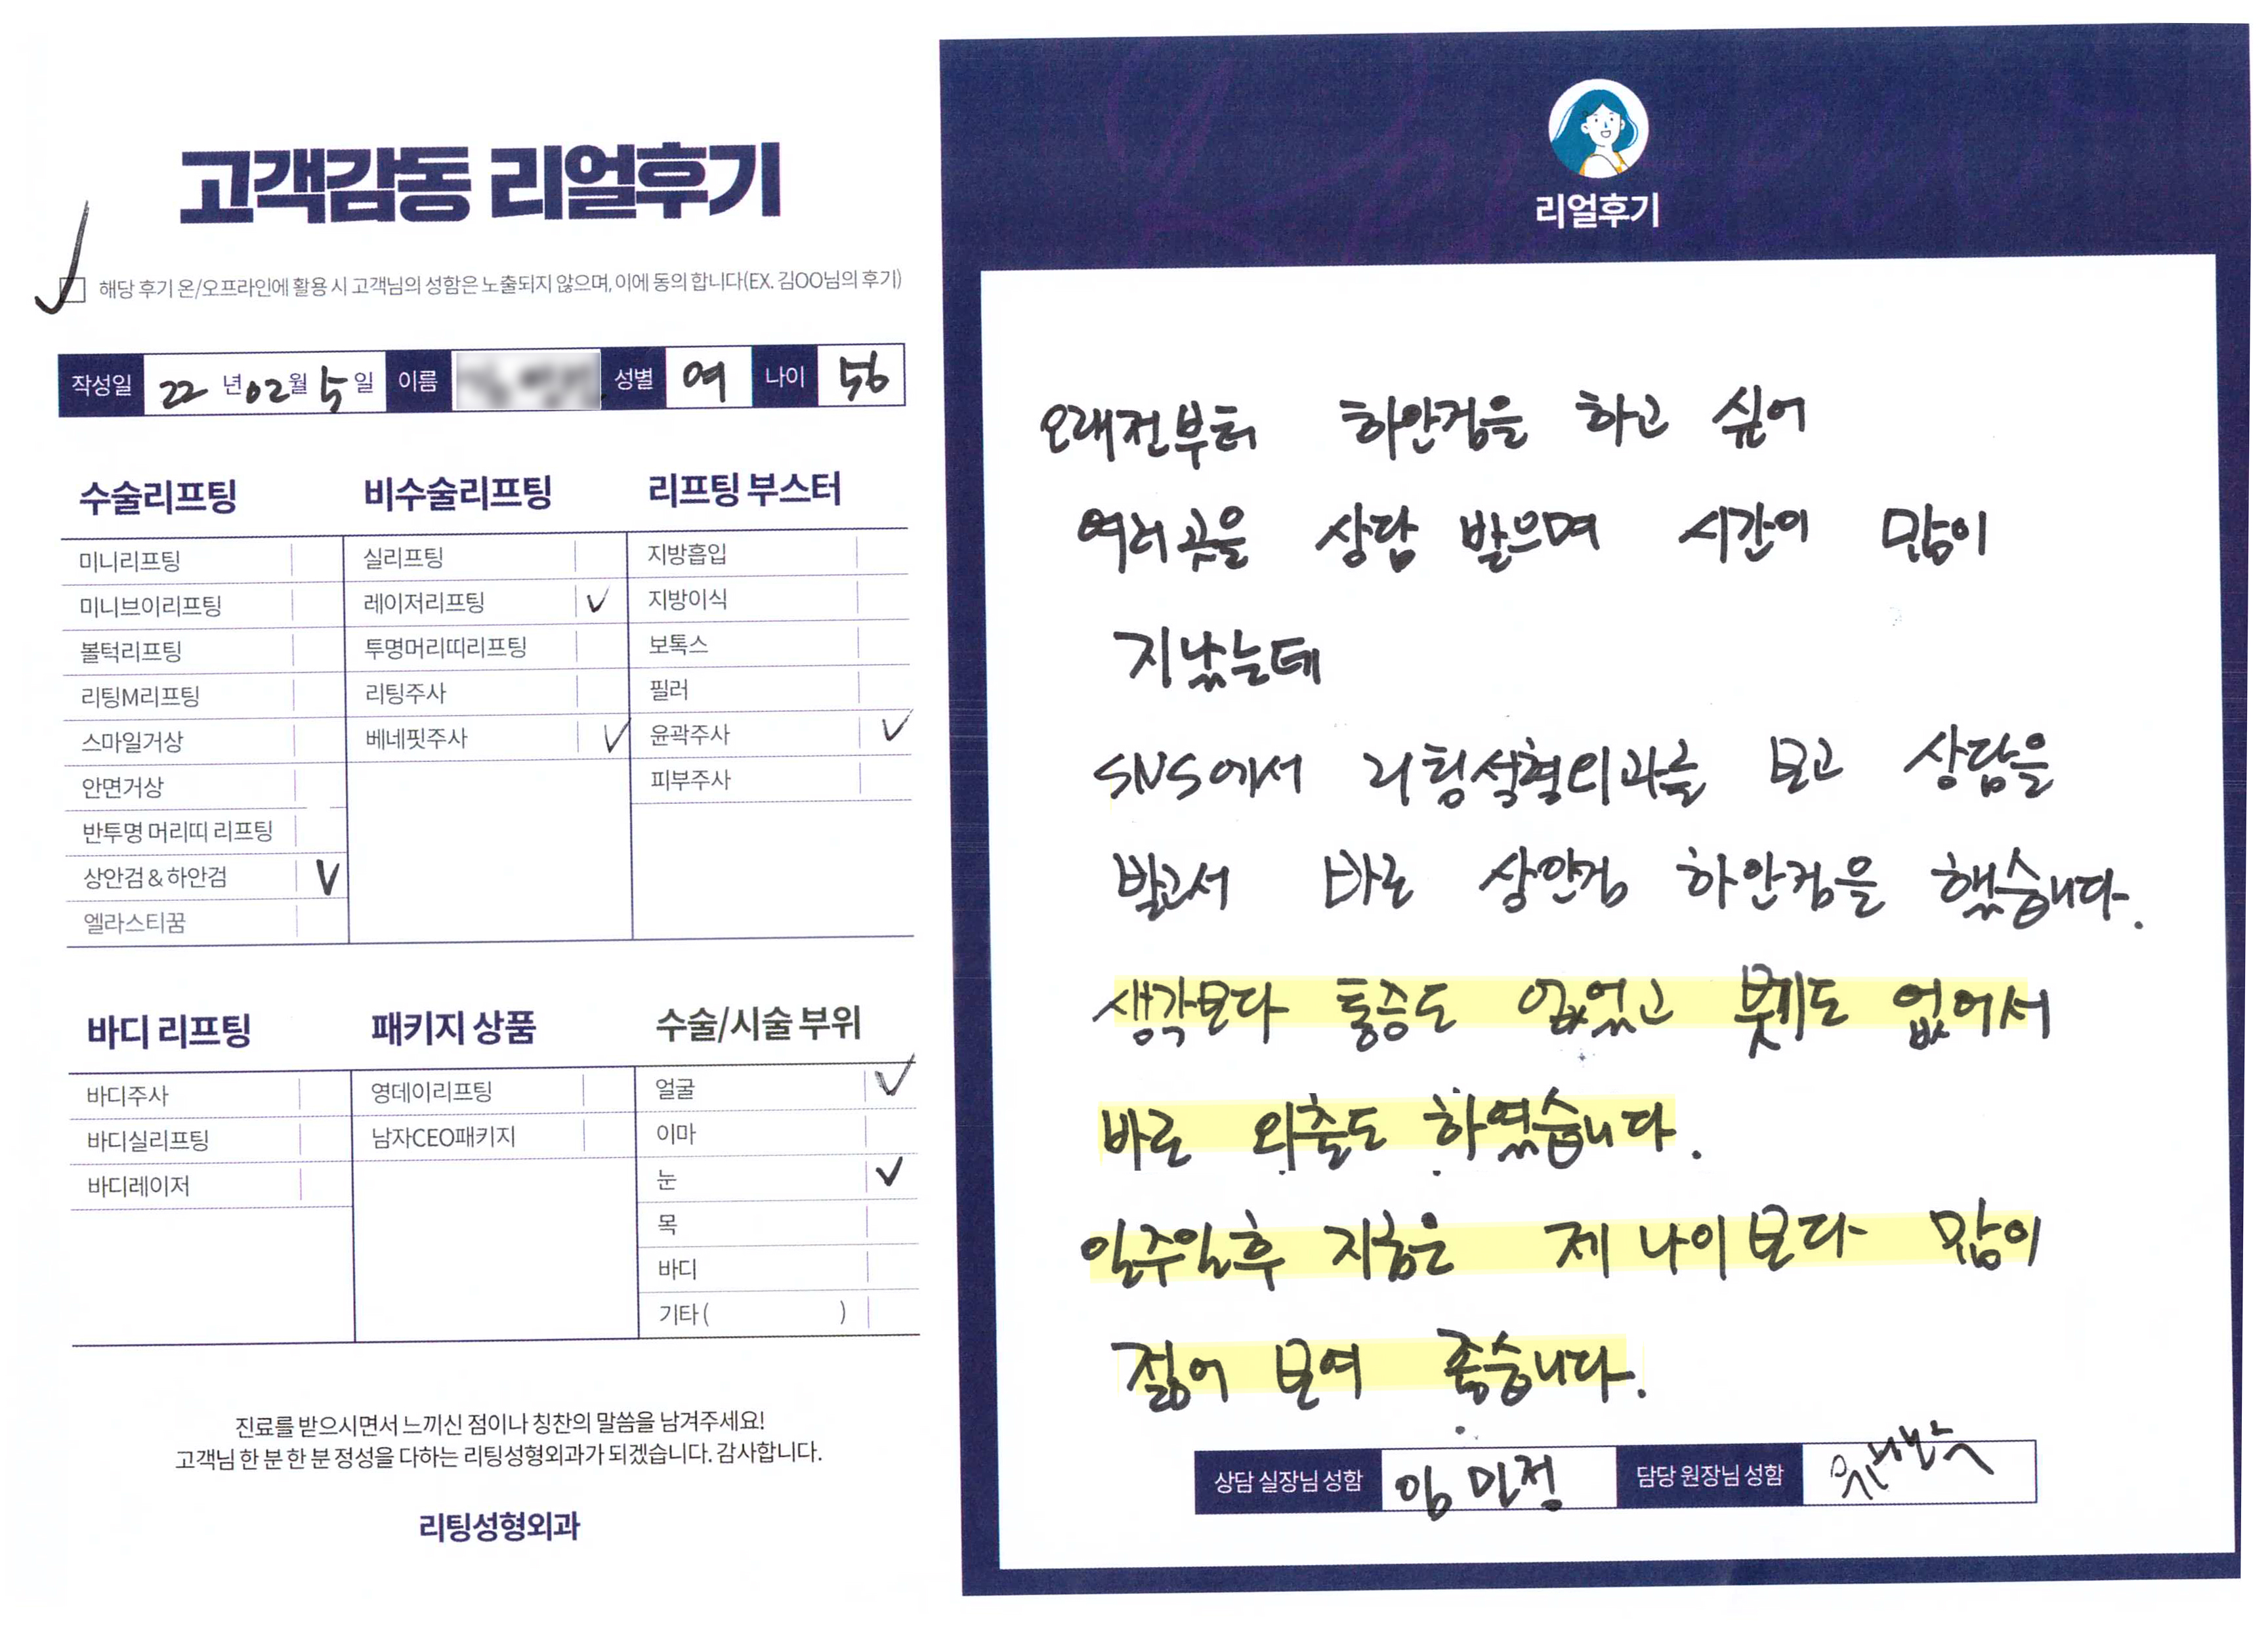 고객감동 리얼후기
해당 후기 온/오프라인에 활용 시 고객님의 성함은 노출되지 않으며, 이에 동의 합니다(EX. 김OO님의 후기)
작성일 22 년 02 월 5 일 이름 성별 여 나이 56
수술리프팅
미니리프팅
미니브이리프팅
볼턱리프팅
리팅M리프팅
스마일거상
안면거상
반투명 머리띠 리프팅
상안검 & 하안검 V
엘라스티꿈
비수술리프팅
실리프팅
레이저리프팅 V
투명머리띠리프팅
리팅주사
베네핏주사 V
리프팅 부스터
지방흡입
지방이식
보톡스
필러
윤곽주사 V
피부주사
바디 리프팅
바디주사
바디실리프팅
바디레이저
패키지 상품
영데이리프팅
남자CEO패키지
수술/시술 부위
얼굴 V
이마
눈 V
목
바디
기타 ( )
진료를 받으시면서 느끼신 점이나 칭찬의 말씀을 남겨주세요!
고객님 한 분 한 분 정성을 다하는 리팅성형외과가 되겠습니다. 감사합니다.
리팅성형외과
리얼후기
오래전부터 하안검을 하고 싶어
여러곳을 상담 받으며 시간이 많이
지났는데
SNS에서 리팅성형외과를 보고 상담을
받고서 바로 상안검 하안검을 했습니다.
생각보다 통증도 없었고 붓기도 없어서
바로 외출도 하였습니다.
일주일후 지금은 제 나이보다 많이
젊어 보여 좋습니다.
상담 실장님 성함 임민정 담당 원장님 성함